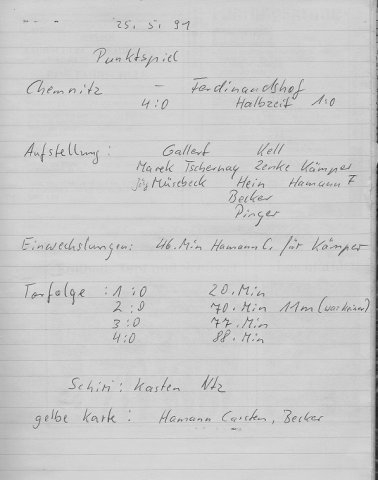 25. 5. 91
Punktspiel
Chemnitz - Ferdinandshof
4:0 Halbzeit 1:0
Aufstellung: Gallert Kell
Marek Tschernay Zenke Kämper
Jörg Müsebeck Hein Hamann F
Becker
Pinger
Einwechslungen: 46. Min Hamann C. für Kämper
Torfolge: 1:0 20. Min
2:0 70. Min 11m (war keiner)
3:0 77. Min
4:0 88. Min
Schiri: Kasten Ntz
gelbe Karte: Hamann Carsten, Becker